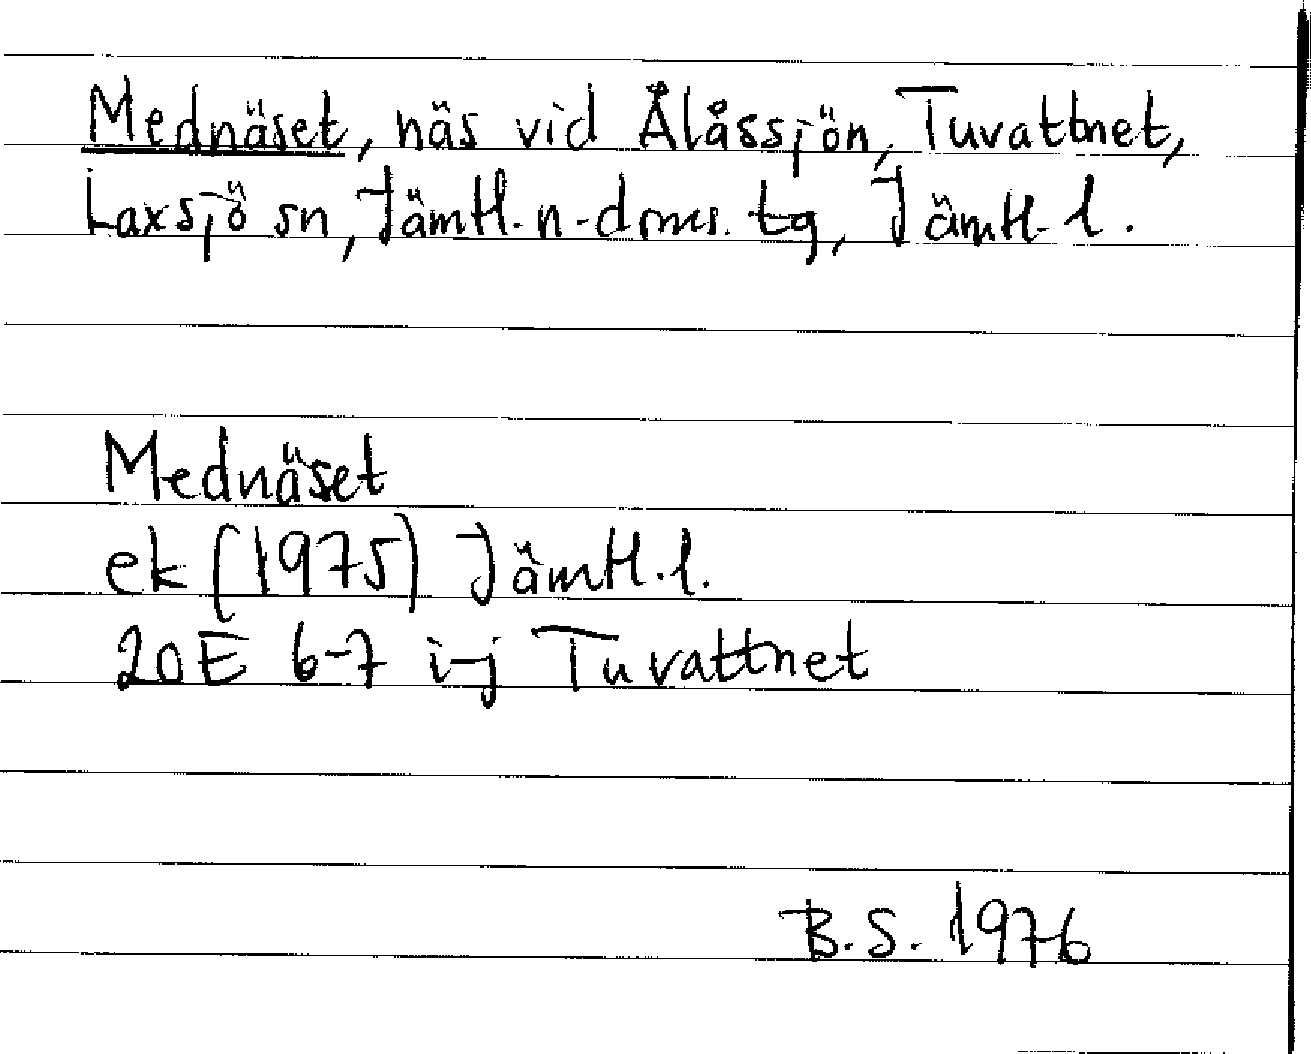 Mednäset, näs vid Ålåssjön, Tuvattnet,
Laxsjö sn, Jämtl. n. doms. tg, Jämtl. l.
Mednäset
ek (1975) Jämtl. l.
20E 6-7 i-j Tuvattnet
B.S. 1976